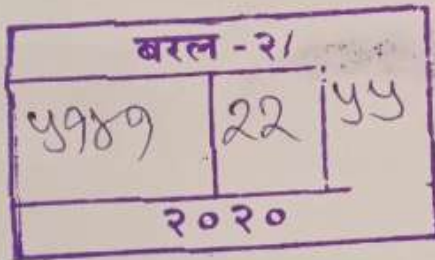 बरल - २/
५१४१ २२ ५५
२०२०